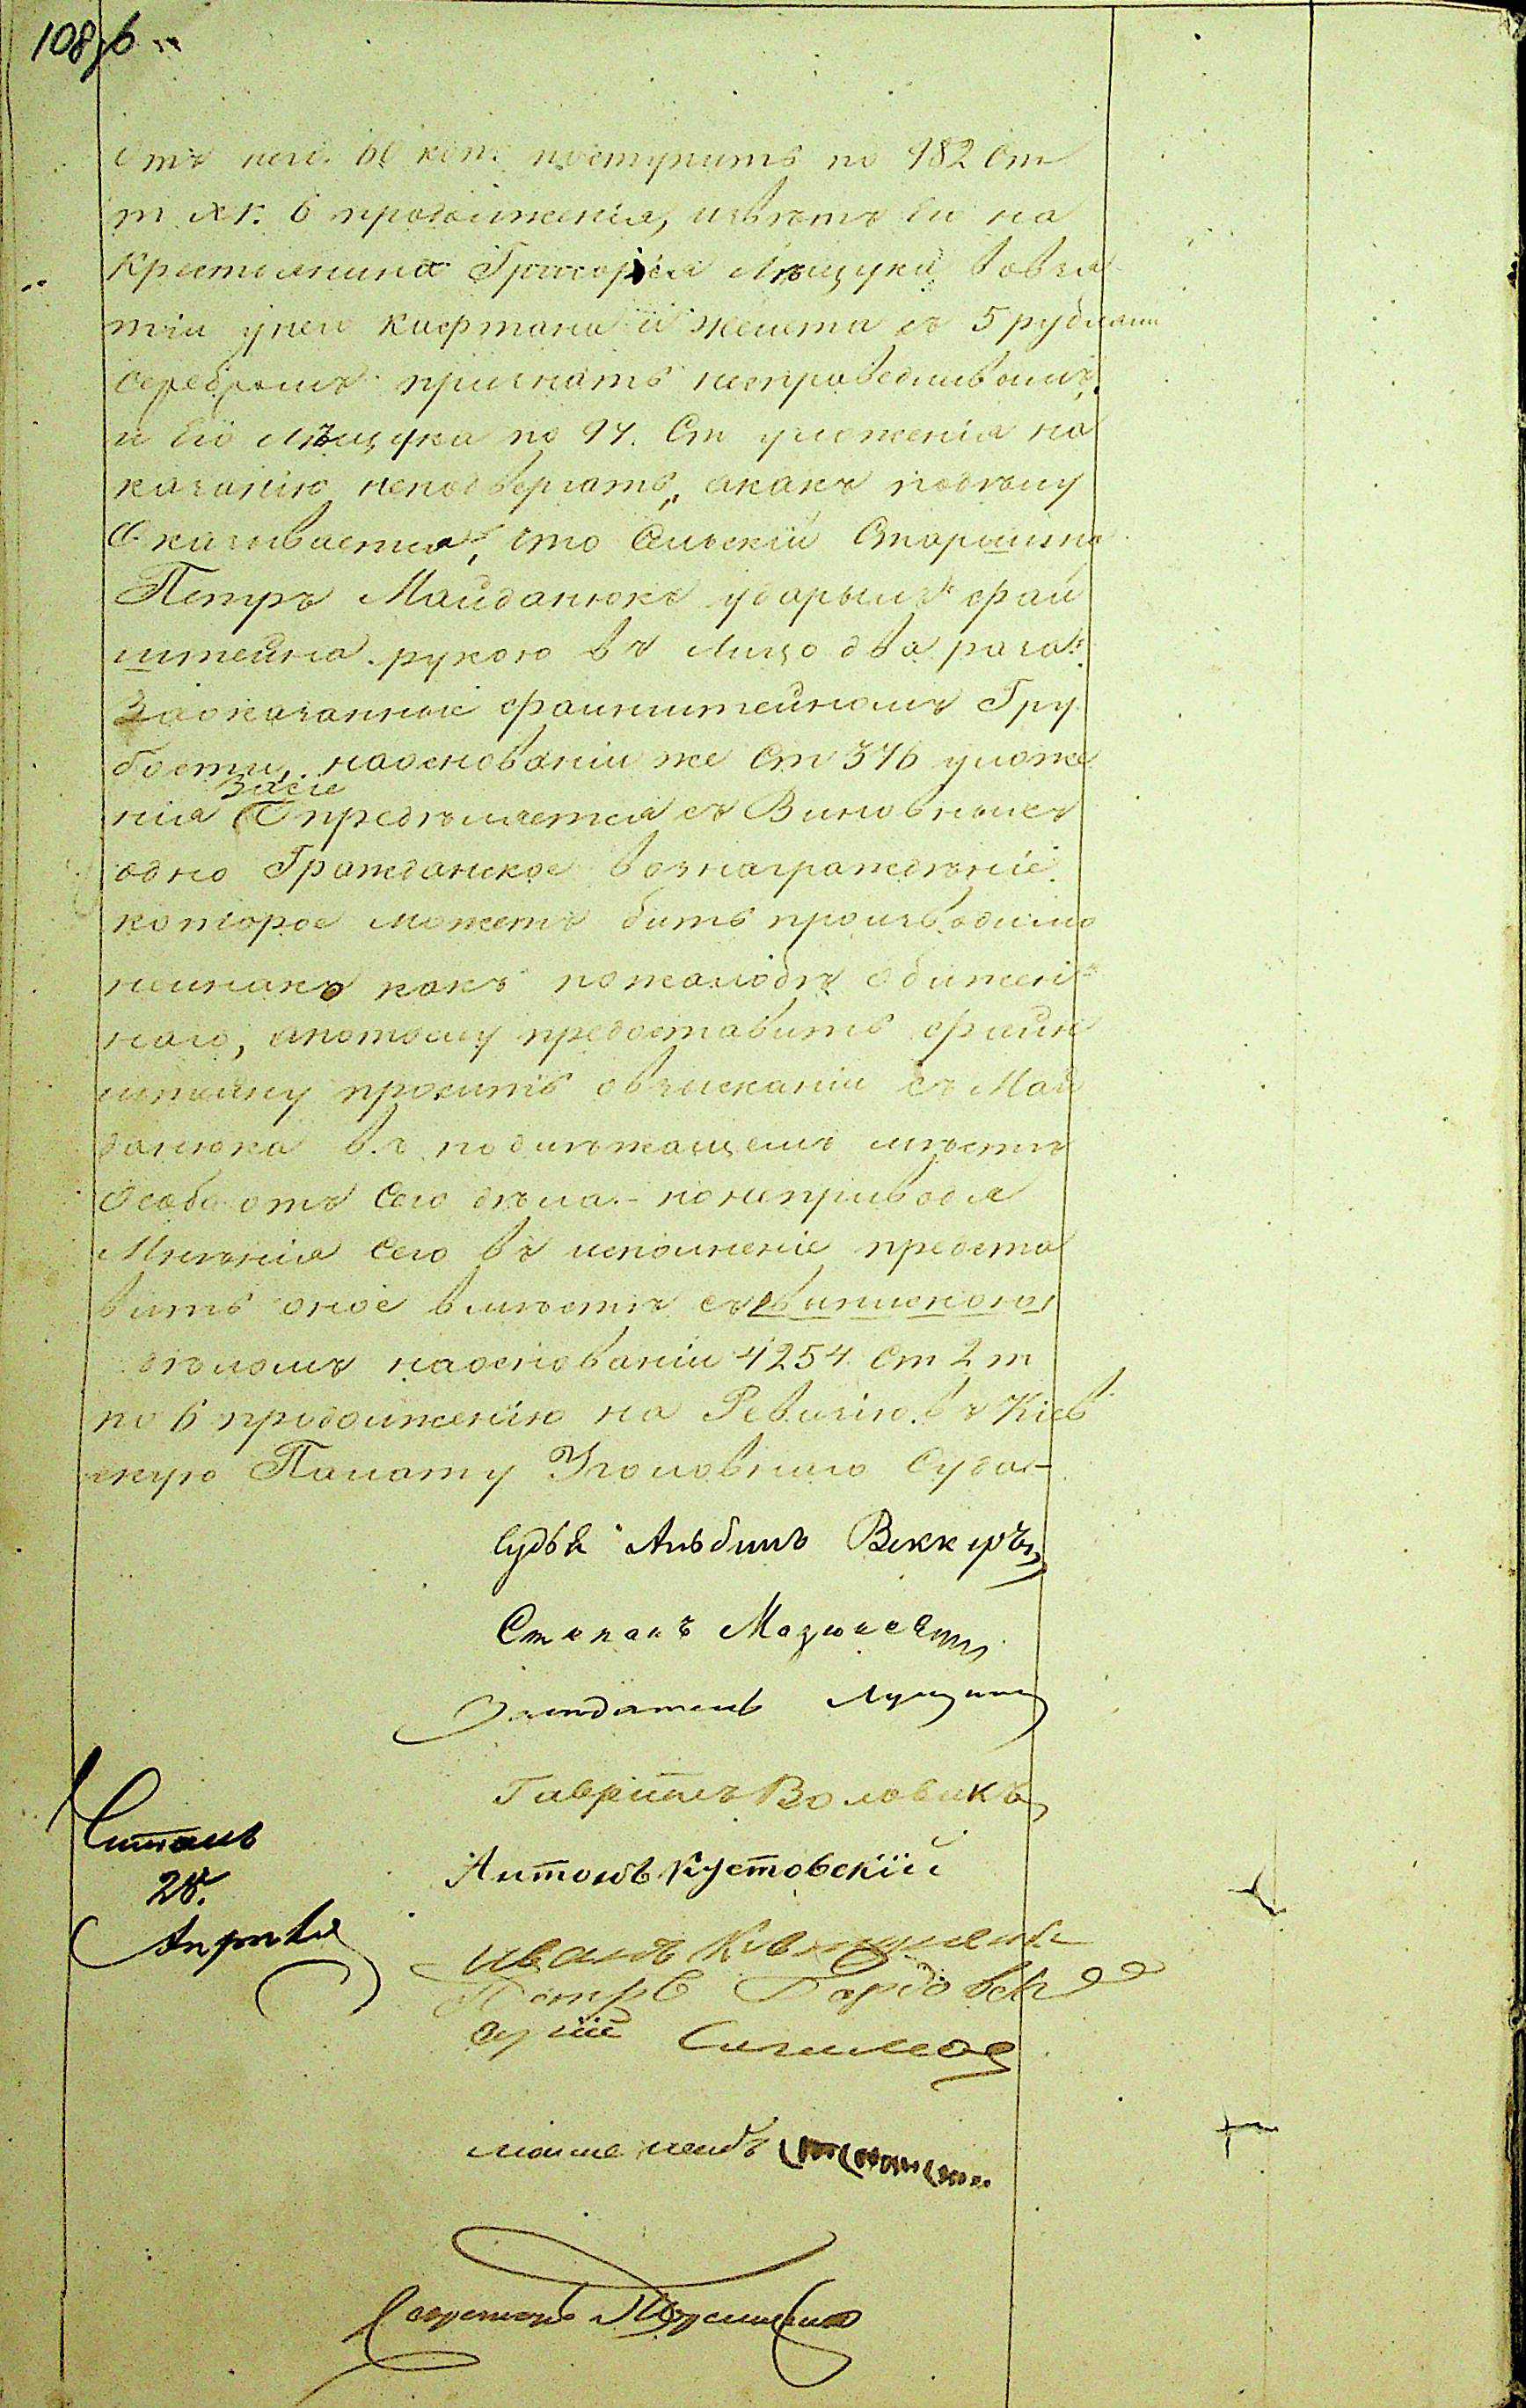 108 об
отъ него. 60 коп: поступить по 982 Ст
т XV. 6 продолженія, изветъ Ею на
Крестьянина Григорія Лѣщука вовзя
тіи унего кафтана и жилета съ 5 рублями
серебромъ признать несправедливымъ,
и Его Лѣщука по 97. Ст уложенія на
казанію неподвергать, акакъ подѣлу
Оказывается, что Сельскій Старшина
Петръ Майданюкъ ударылъ фай
штейна рукою въ Лицо два раза
Заоказанные файнштейномъ Гру
бости, наоснованіи же Ст 376 уложе
нія Засіе Опредѣляется съ Виновныхъ
одно Гражданское вознагражденіе
которое можетъ бить производимо
неинако какъ пожалобѣ Обижен
наго, апотому предоставить файн
штейну просить овзысканіи съ Май
данюка въ подлежащемъ мѣстѣ
Особо отъ Сего дѣла.- нонеприводя
Мнѣнія Сего въ исполненіе предста
вить оное вмѣстѣ съ выпискою
дѣломъ наоснованіи 4254 Ст 2 т
по 6 продолженію на Ревизію въ Кіев
скую Палату Уголовнаго Суда-
Судья Альбинъ Веккеръ
Степанъ
Засѣдатель
Гавріилъ Воловикъ
Читалъ
28.
Антонъ Кустовскій
Апреля
Иванъ
Петръ

Секретарь